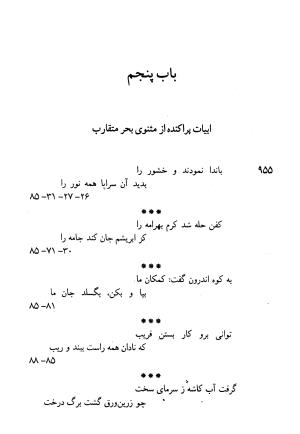 باب پنجم
ابیات پراکنده از مثنوی بحر متقارب
۹۵۵ باندا نمودند و خشور را
بدید آن سراپا همه نور را
۲۶- ۲۷- ۳۱- ۸۵
***
کفن حله شد کرم بهرامه را
کز ابریشم جان کند جامه را
۳۰- ۷۱- ۸۵
***
به کوه اندرون گفت: کمکان ما
بیا و بکن، بگسلد جان ما
۸۱- ۸۵
***
توانی برو کار بستن فریب
که نادان همه راست بیند و ریب
۸۵- ۸۸
***
گرفت آب کاشه ز سرمای سخت
چو زرین‌ورق گشت برگ درخت